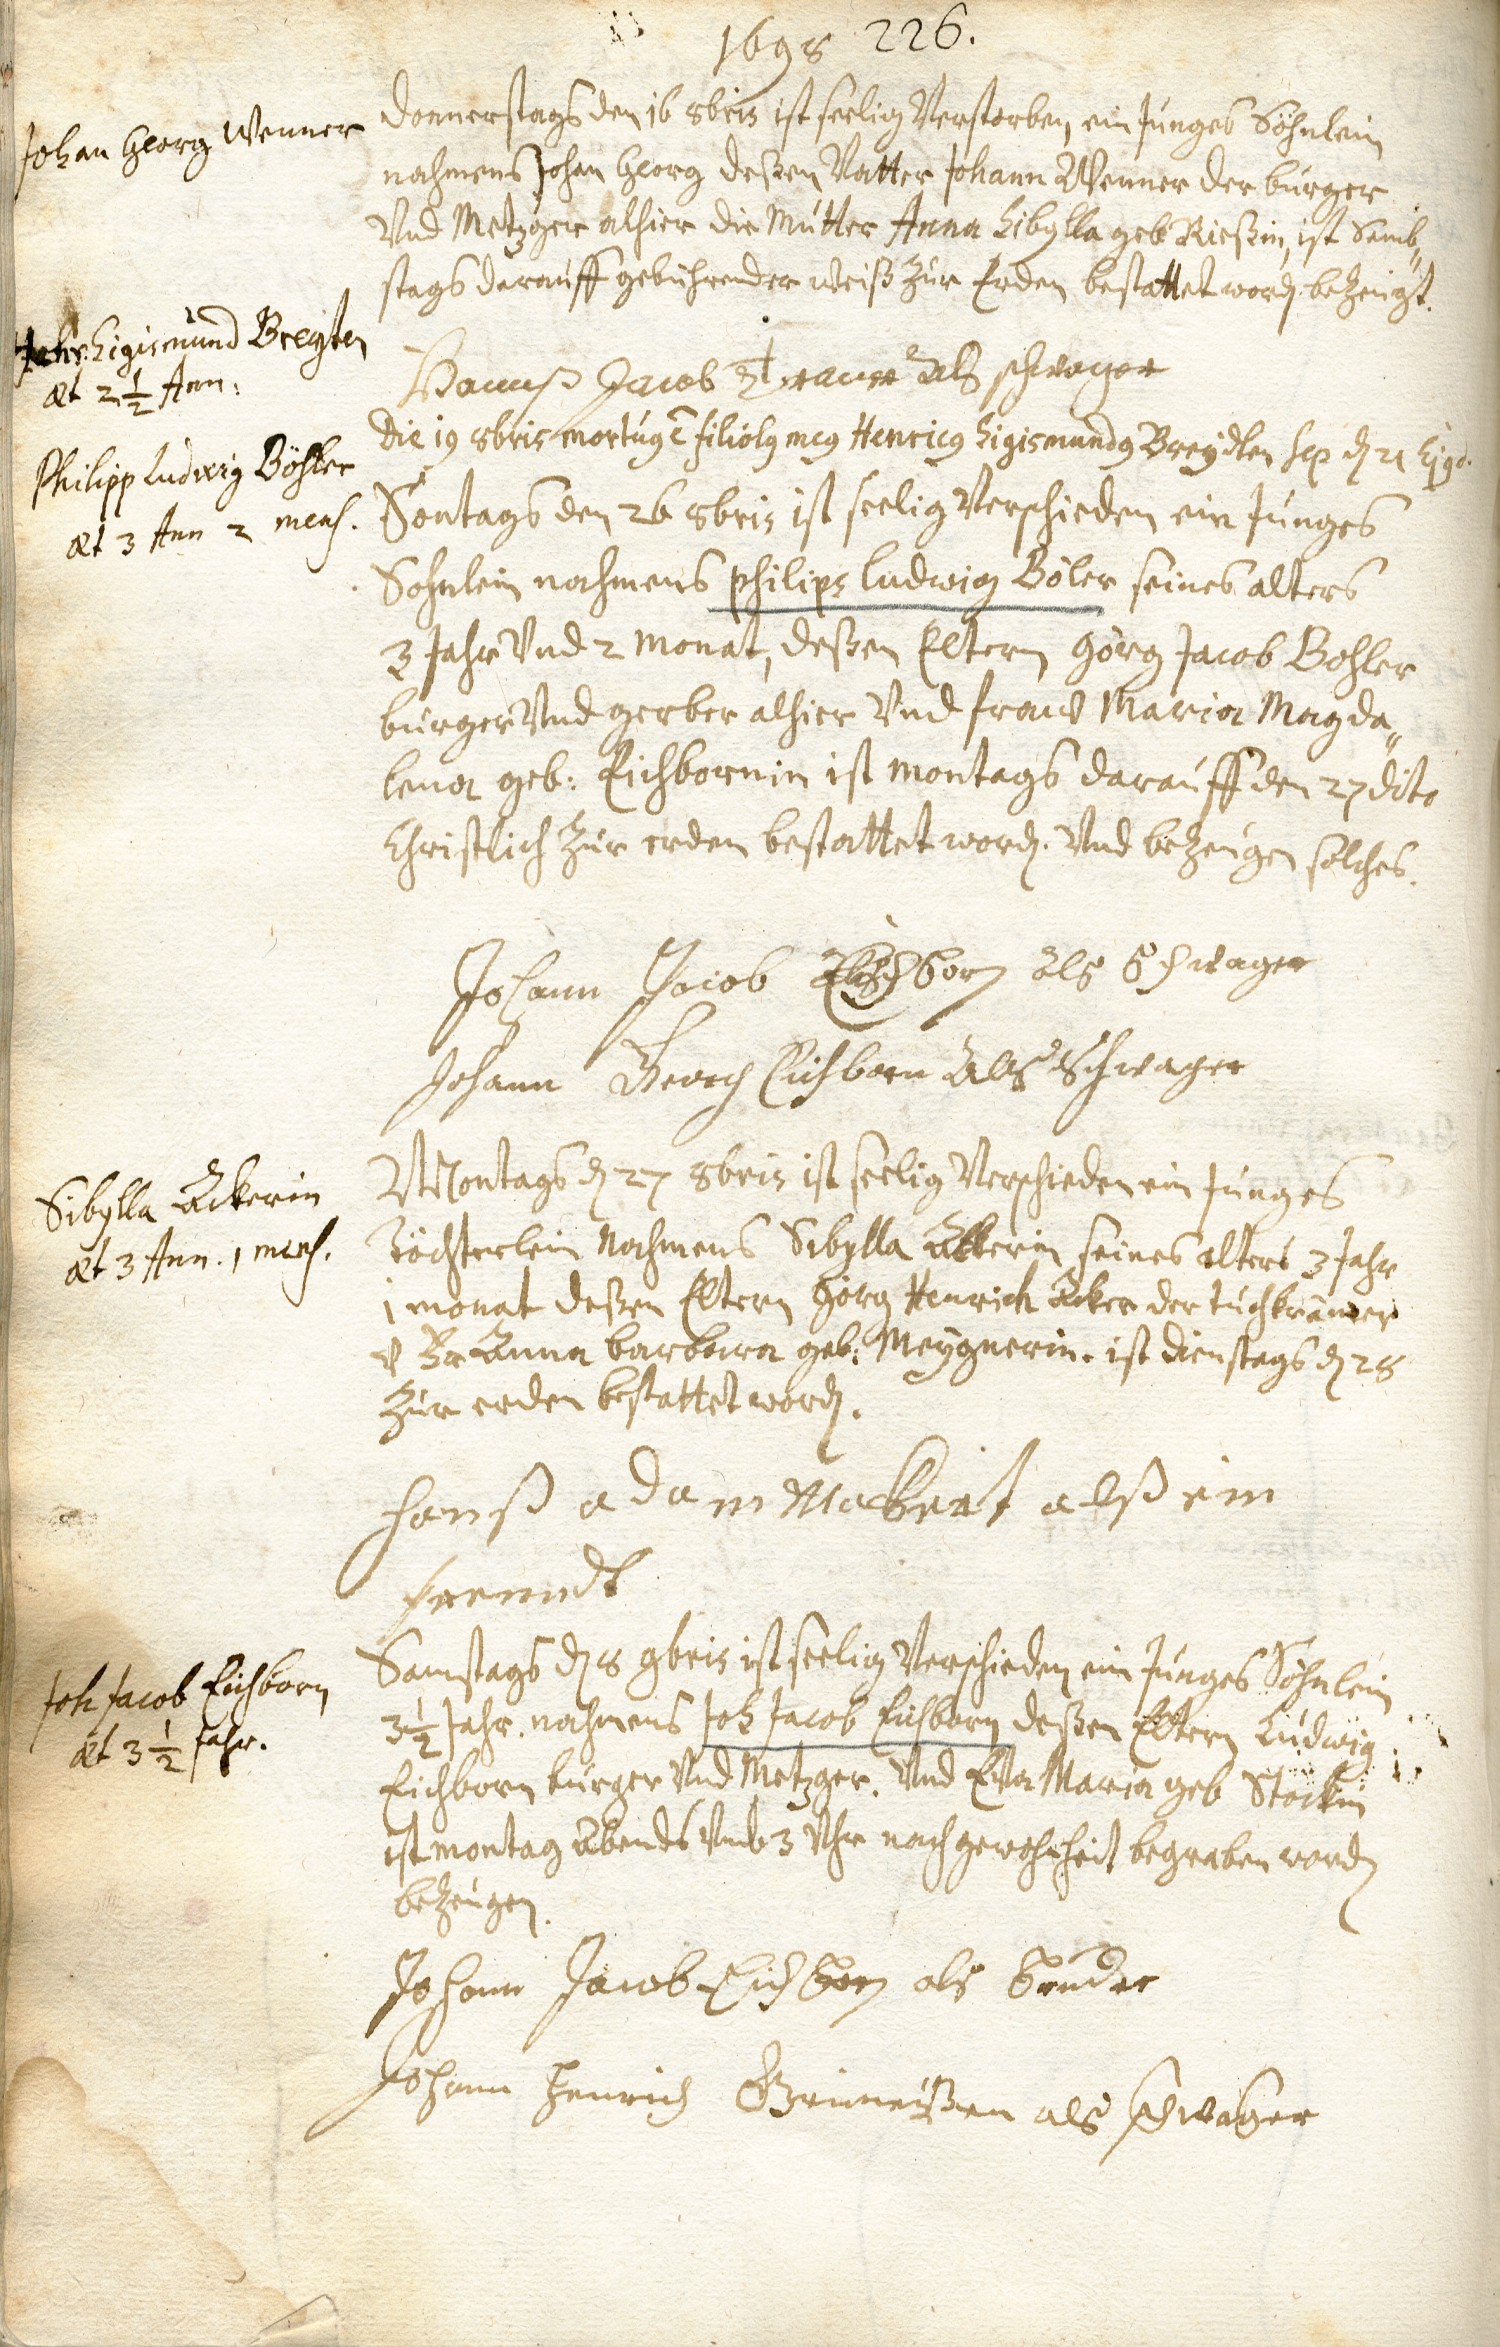 1698 226.
Johan Georg Wenner
Donnerstags den 16 8bris ist seelig Verstorben, ein Junges Söhnlein
nahmens Johan Georg deßen Vatter Johann Wenner der burger
Vnd Metzger alhier die Mutter Anna Sibylla geb Rießin, ist Samb„
stags darauff gebührender weiß zur Erden bestattet word. bezeugt.
Hanß Jacob als schwager
Sigismund Breyten
æt 2 1/2 Ann:
Die 19 8bris mortu9 ē filiol9 me9 Henric9 Sigismund9 Breydten Sep d 21 Ej9d.
Philipp Ludwig Böhler
æt 3 Ann 2 mens.
Sontags den 26 8bris ist seelig Verschieden ein Junges
Sohnlein nahmens philips Ludwig Böler seines alters
3 Jahr Vnd 2 Monat, deßen Eltern Görg Jacob Bohler
burger Vnd gerber alhier Vnd fraw Maria Magda„
lena geb: Eichbornin ist Montags darauff den 27 dito
Christlich zur erden bestattet word. Vnd bezeugen solches.
Johann Jacob Eichborn als Schwager
Johann Georg Eichborn als Schwager
Sibylla Äckerin
æt 3 Ann. 1 mens.
Montags d 27 8bris ist seelig Verschieden ein Junges
Töchterlein Nahmens Sibylla Äckerin seines alters 3 Jahr
1 monat deßen Eltern Görg Henrich Äcker der tuchkrämer
v Fr Anna barbara geb: Meygnerin. ist Dienstags d 28
zur erden bestattet word.
Hanß adam Mackert alß ein
freundt
Joh Jacob Eichborn
æt 3 1/2 Jahr.
Samstags d 8 9bris ist seelig Verschieden ein Junges Söhnlein
3 1/2 Jahr. nahmens Joh Jacob Eichborn deßen Eltern Ludwig
Eichborn burger Vnd Metzger. Vnd Eva Maria geb Stöckin
ist montag Abends Vmb 3 Vhr nach gewohnheit begraben word
bezeugen.
Johann Jacob Eichborn als bruder
Johann Henrich als schwager